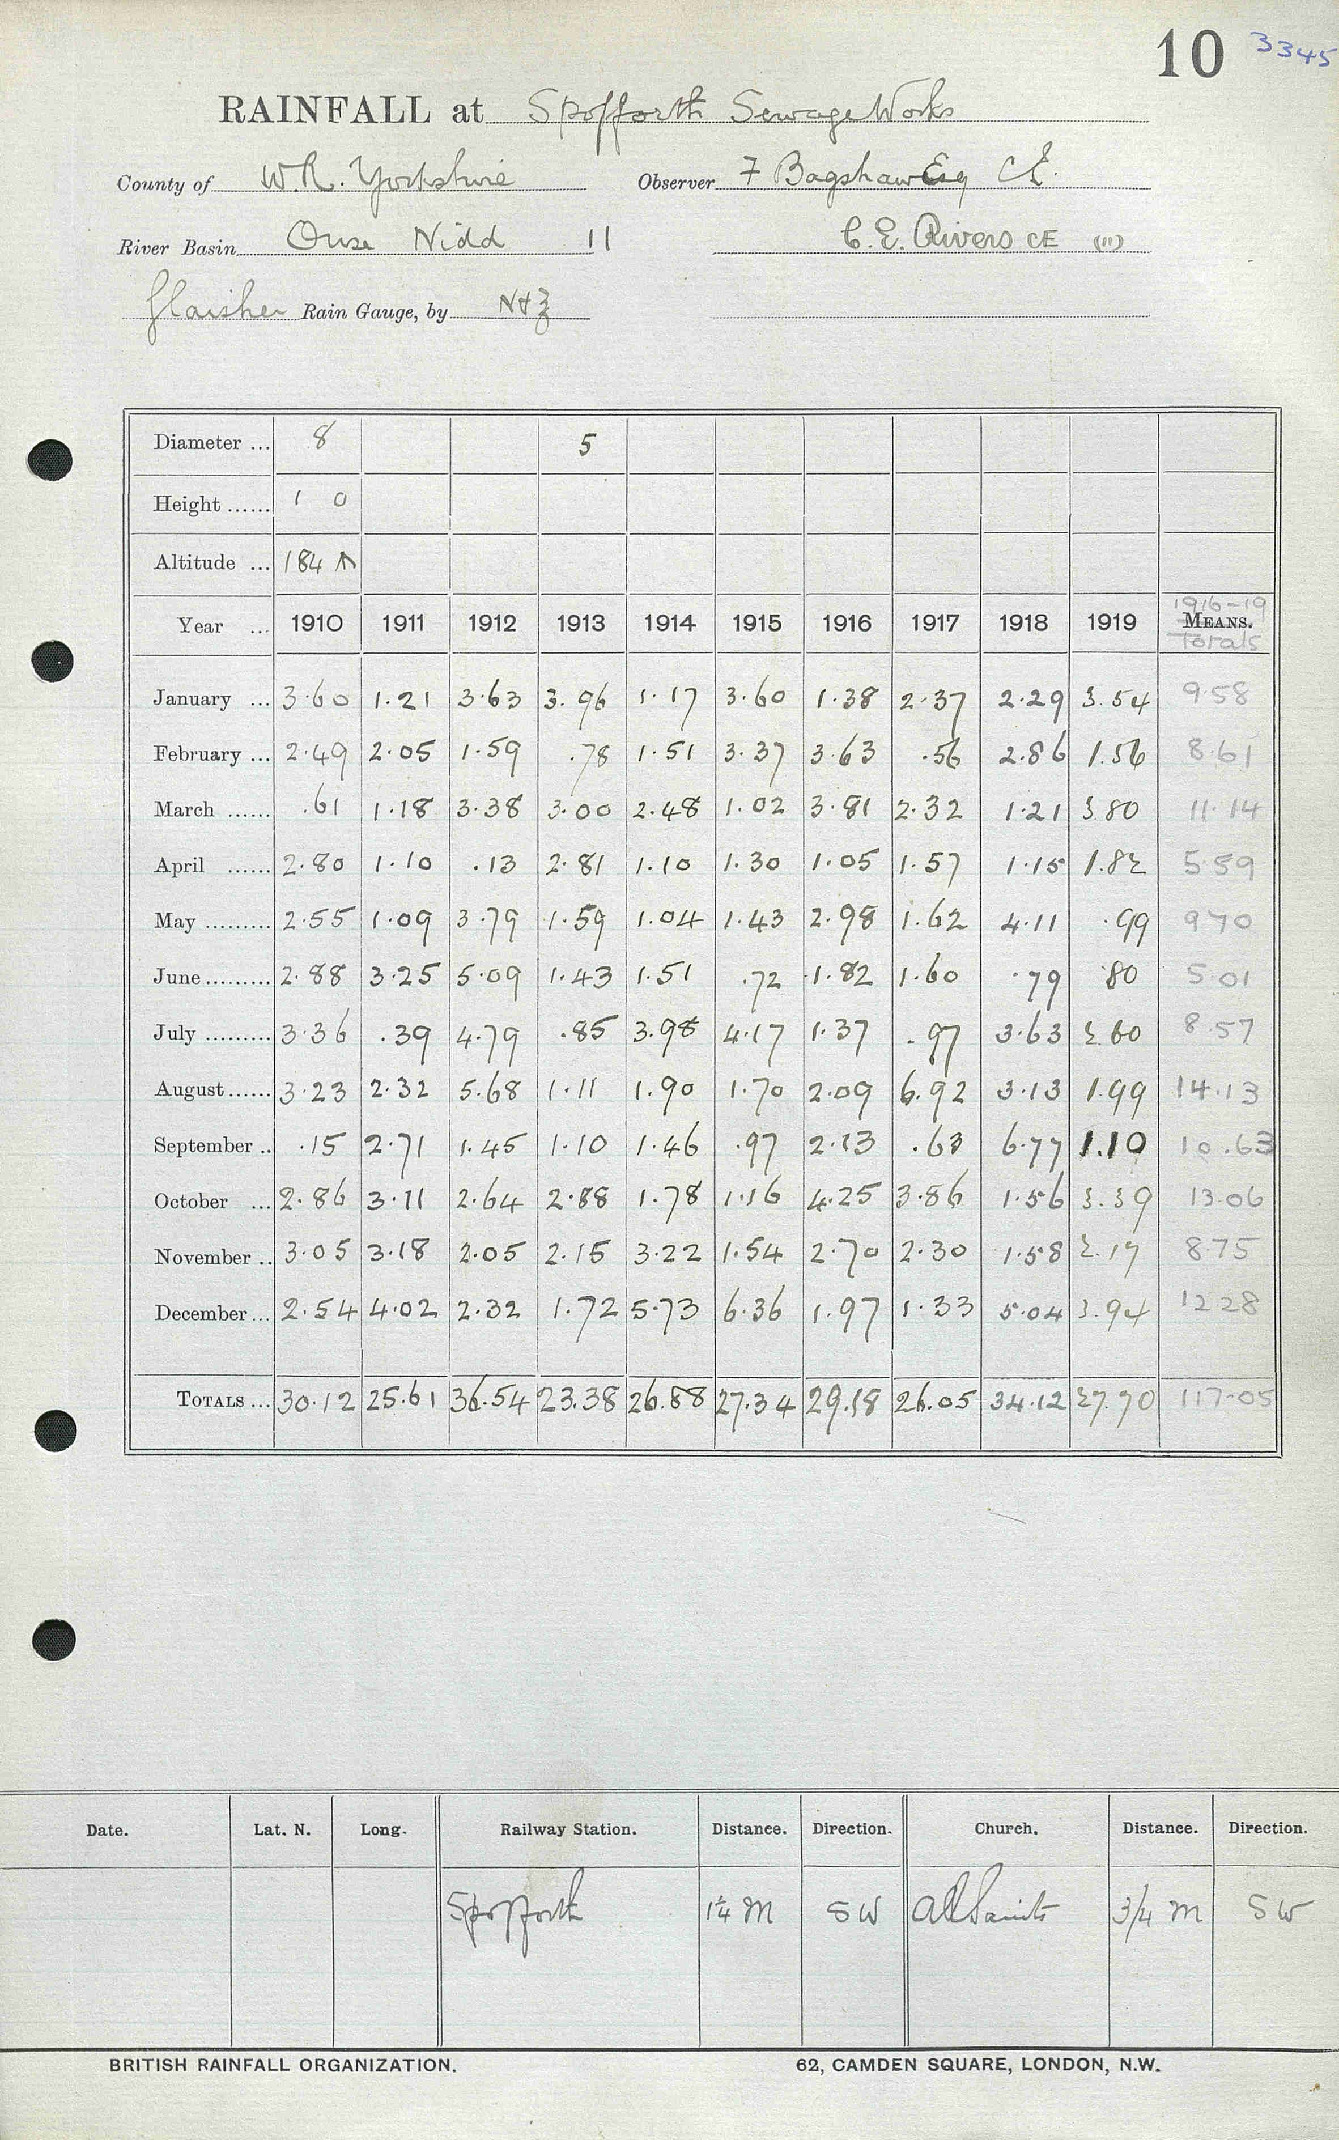 10 3345
RAINFALL at Spofforth Sewage Works
County of W R. Yorkshire Observer F Bagshaw Esq C.E.
River Basin Ouse Nidd 11 C.E. Rivers CE (11)
Glaisher Rain Gauge, by N&Z
Diameter ... 8 5
Height ...... 1 0
Altitude ... 184 ↑
1916-19
Year ... 1910 1911 1912 1913 1914 1915 1916 1917 1918 1919 MEANS.
Totals
January ... 3.60 1.21 3.63 3.96 1.17 3.60 1.38 2.37 2.29 3.54 9.58
February ... 2.49 2.05 1.59 .78 1.51 3.37 3.63 .56 2.86 1.56 8.61
March ...... .61 1.18 3.38 3.00 2.48 1.02 3.81 2.32 1.21 3.80 11.14
April ...... 2.80 1.10 .13 2.81 1.10 1.30 1.05 1.57 1.15 1.82 5.59
May ......... 2.55 1.09 3.79 1.59 1.04 1.43 2.98 1.62 4.11 .99 9.70
June ......... 2.88 3.25 5.09 1.43 1.51 .72 1.82 1.60 .79 .80 5.01
July ......... 3.36 .39 4.79 .85 3.98 4.17 1.37 .97 3.63 2.60 8.57
August ...... 3.23 2.32 5.68 1.11 1.90 1.70 2.09 6.92 3.13 1.99 14.13
September .. .15 2.71 1.45 1.10 1.46 .97 2.13 .63 6.77 1.10 10.63
October ... 2.86 3.11 2.64 2.88 1.78 1.16 4.25 3.86 1.56 3.39 13.06
November .. 3.05 3.18 2.05 2.15 3.22 1.54 2.70 2.30 1.58 2.17 8.75
December ... 2.54 4.02 2.32 1.72 5.73 6.36 1.97 1.33 5.04 3.94 12.28
TOTALS ... 30.12 25.61 36.54 23.38 26.88 27.34 29.18 26.05 34.12 27.70 117.05
Date. Lat. N. Long. Railway Station. Distance. Direction. Church. Distance. Direction.
Spofforth 1¼ M SW All Saints 3/4 M SW
BRITISH RAINFALL ORGANIZATION. 62, CAMDEN SQUARE, LONDON, N.W.